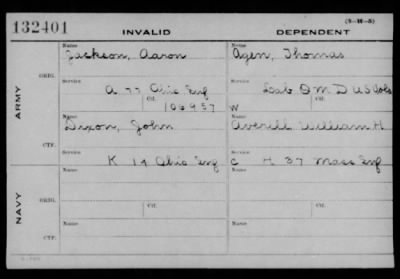 132401 INVALID DEPENDENT (3-18-5)
Name Name
Jackson, Aaron Agen, Thomas
ORIG. Service Service
A 77 Ohio Inf Lab Q M D US Vols
ARMY Ctf. Ctf.
106957 W
Name Name
Dixon, John Averill William H
CTF. Service Service
K 14 Ohio Inf C H 37 Mass Inf
Name Name
NAVY ORIG. Ctf. Ctf.
Name Name
CTF.